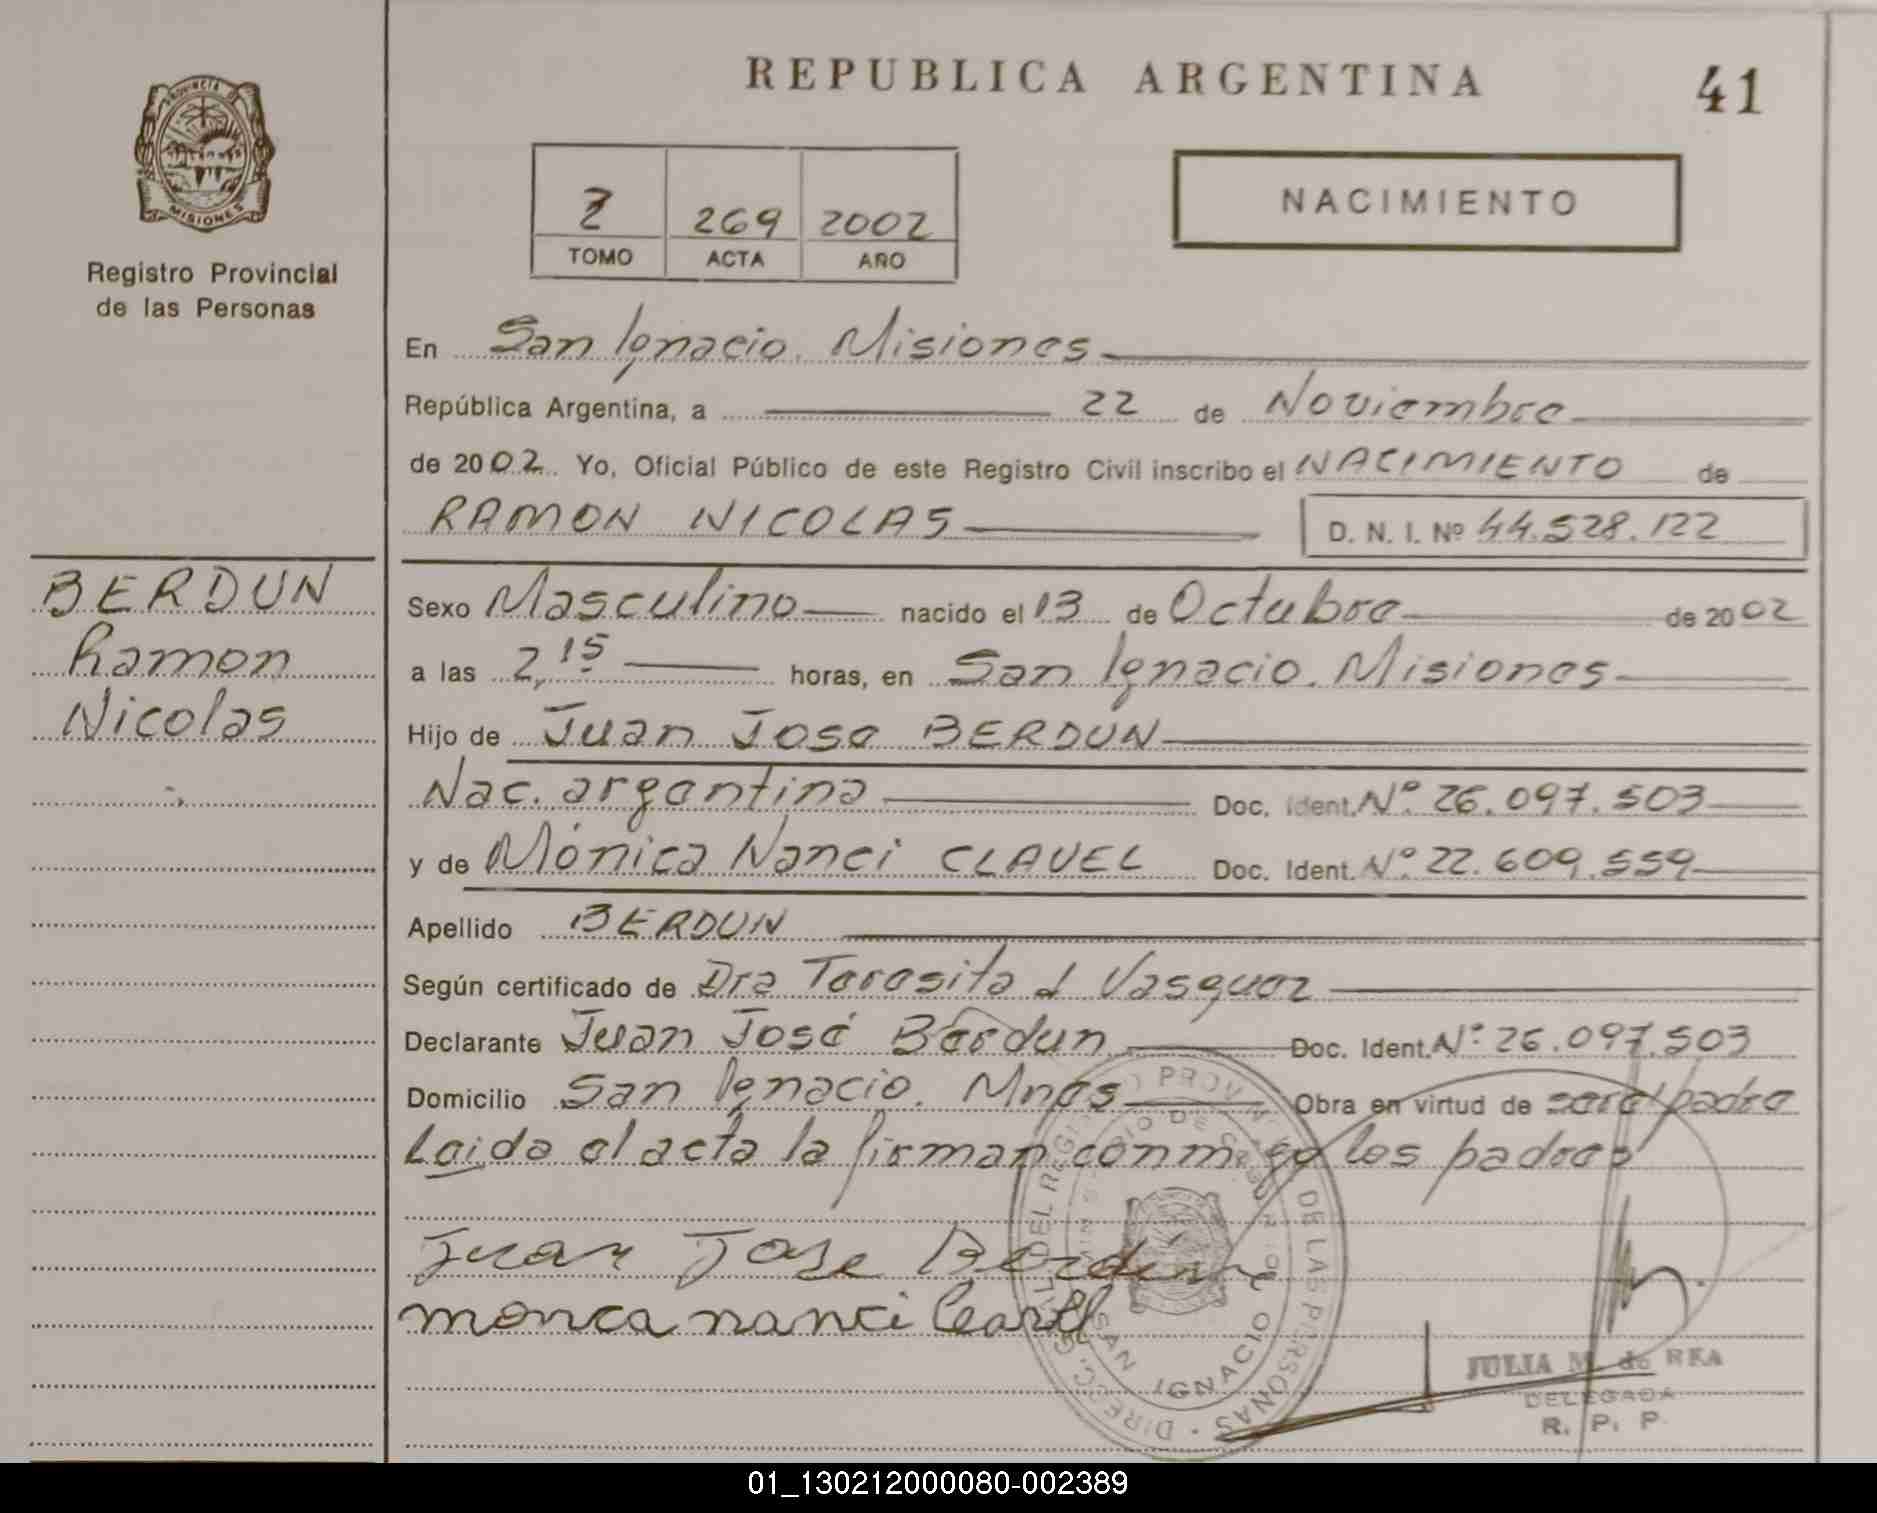 REPUBLICA ARGENTINA
41
PROVINCIA DE
MISIONES
Registro Provincial
de las Personas
2 269 2002
TOMO ACTA AÑO
NACIMIENTO
En San Ignacio. Misiones
República Argentina, a 22 de Noviembre
de 2002. Yo, Oficial Público de este Registro Civil inscribo el NACIMIENTO de
RAMON NICOLAS D. N. I. Nº 44.528.122
BERDUN
Ramon
Nicolas
Sexo Masculino nacido el 13 de Octubre de 2002
a las 2,15 horas, en San Ignacio. Misiones
Hijo de Juan Jose BERDUN
Nac. argentina Doc. Ident. Nº. 26.097.503
y de Mónica Nanci CLAVEL Doc. Ident. Nº. 22.609.559
Apellido BERDUN
Según certificado de Dra Teresita d Vasquez
Declarante Juan José Berdun Doc. Ident. Nº. 26.097.503
Domicilio San Ignacio. Mnes Obra en virtud de ser el padre
Leida el acta la firman conmigo los padres
Juan Jose Berdun
monca nanci
DIRECC. GRAL. DEL REGISTRO PROVINCIAL DE LAS PERSONAS
SAN IGNACIO
JULIA M. de REA
DELEGADA
R. P. P.
01_130212000080-002389